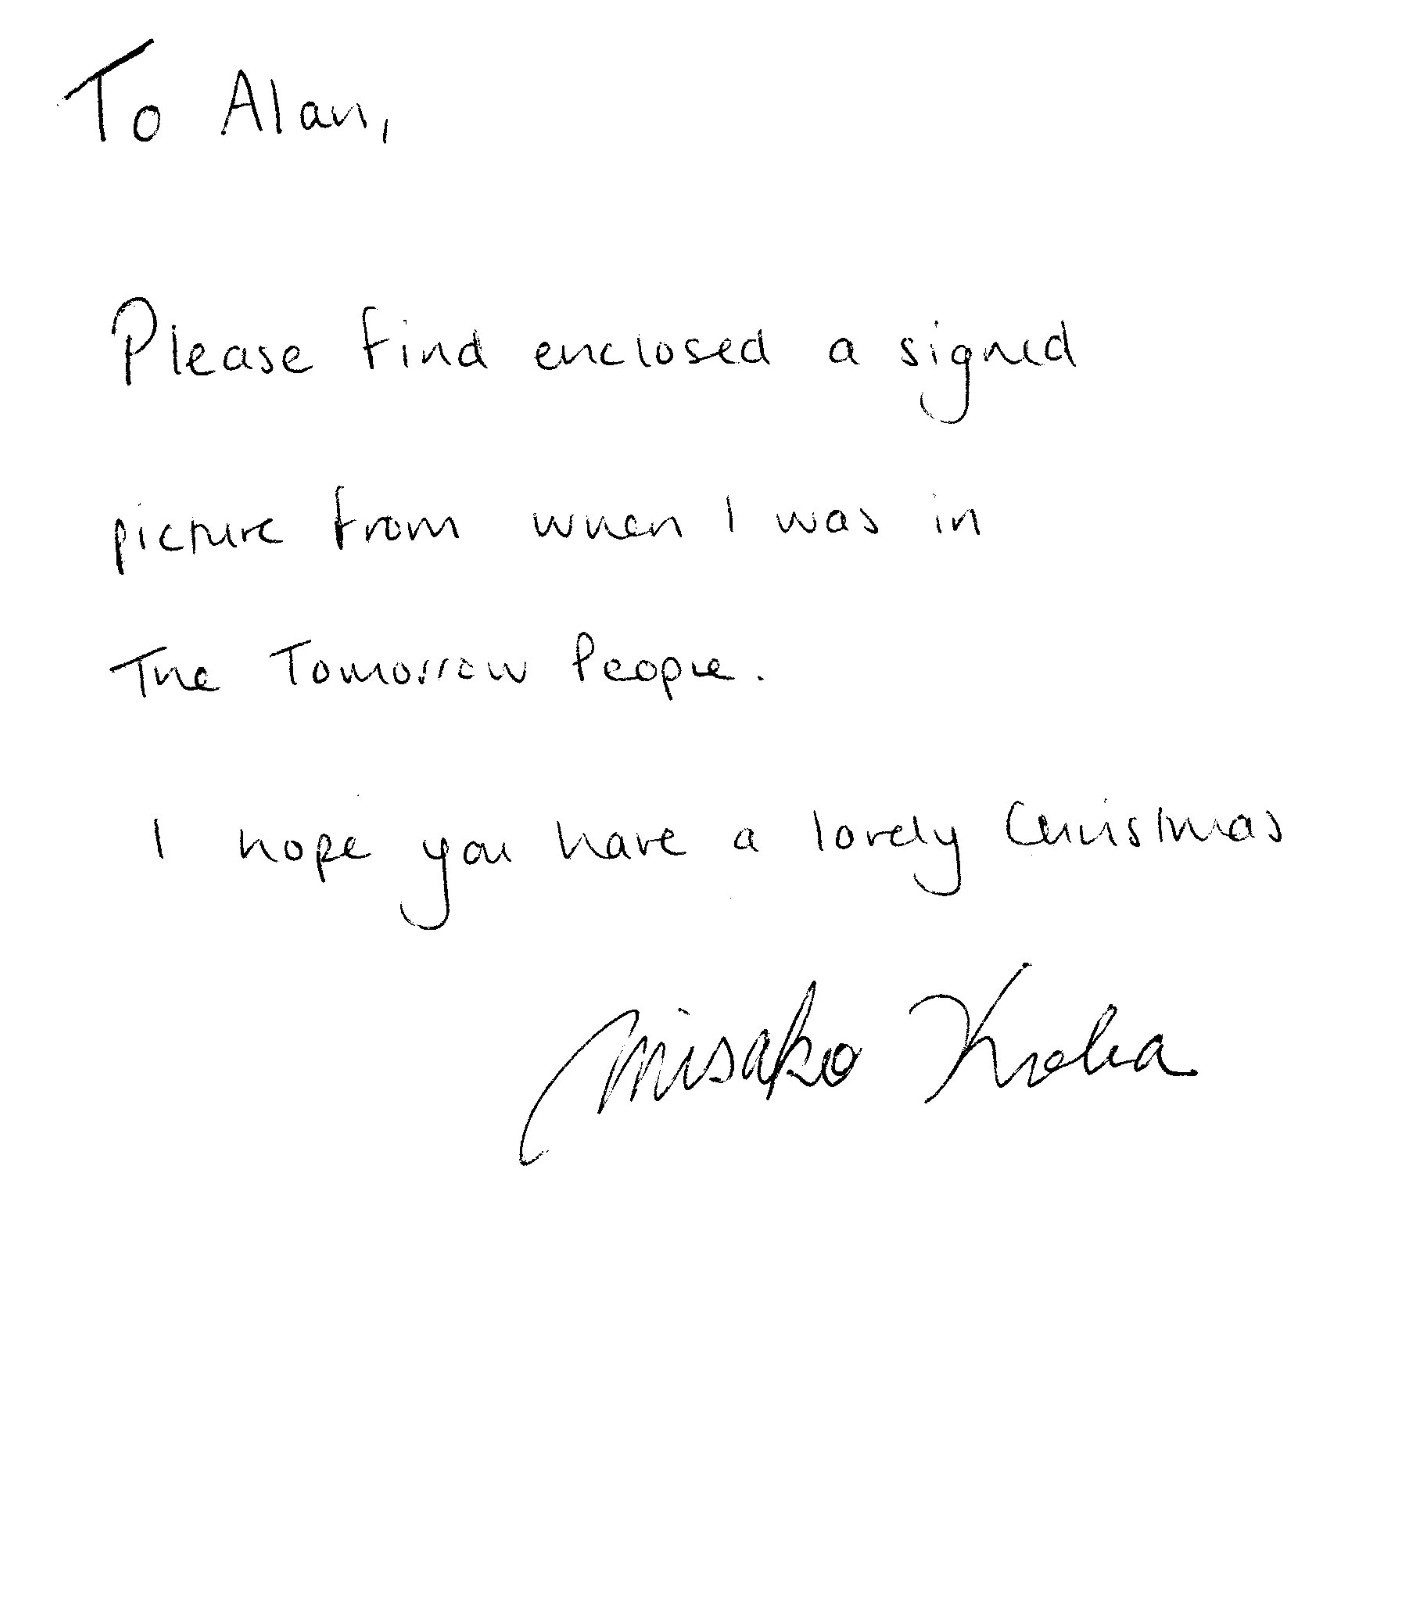 To Alan,
Please find enclosed a signed
picture from when I was in
The Tomorrow People.
I hope you have a lovely Christmas
Misako Koba